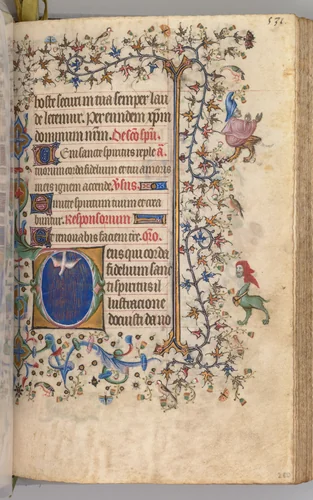 hoste securi in tua semper lau
de letemur. Per eundem xpm
dominum nrm. De sco spu. a.
Veni sancte spiritus reple tu
orum corda fidelium et tui amoris
in eis ignem accende. Vsus.
Emitte spiritum tuum et crea
buntur. Responsorium
Et renovabis faciem tre. Oro.
Deus qui corda
fidelium sanc
ti spiritus il
lustracione
docuisti da no